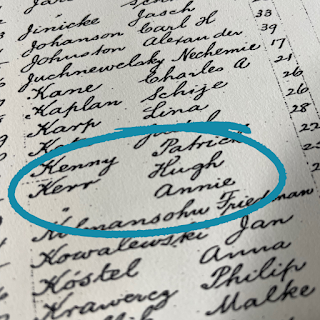 Jinicke Jasch 33
Johanson Carl H 39
Johnston Alexander 17
Juchnewclsky Nechemie 21
Kane Charles A 26
Kaplan Schije 26
Karp Lina 28
Kenny Patrick
Kerr Hugh
" Annie
Kilmansohn Friedman
Kowalewski Jan
Kostel Anna
Krawercz Philip
Malke